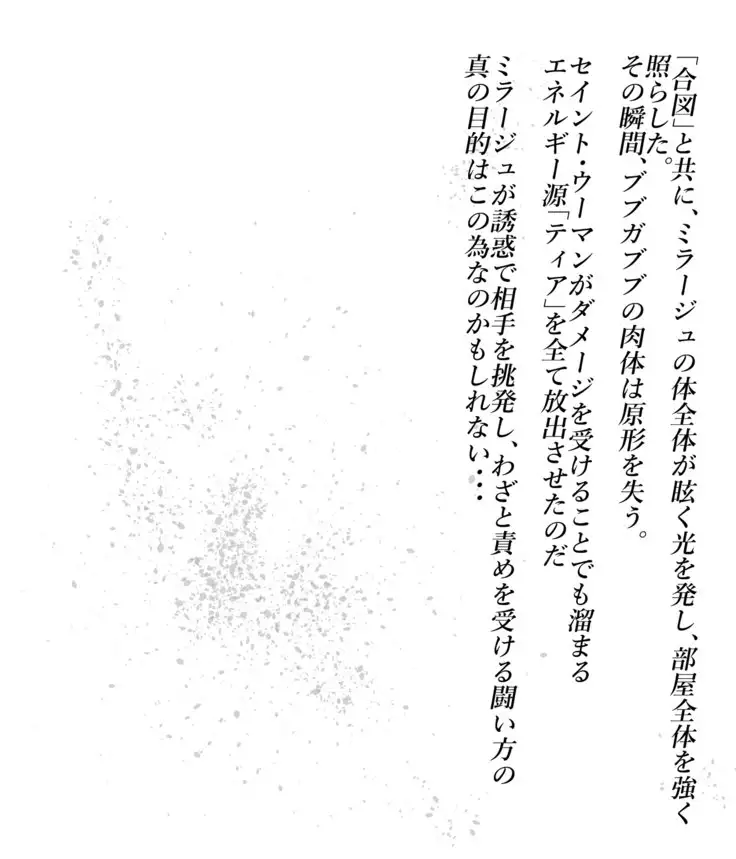 「合図」と共に、ミラージュの体全体が眩く光を発し、部屋全体を強く
照らした。
その瞬間、ブブガブブの肉体は原形を失う。
セイント・ウーマンがダメージを受けることでも溜まる
エネルギー源「ティア」を全て放出させたのだ
ミラージュが誘惑で相手を挑発し、わざと責めを受ける闘い方の
真の目的はこの為なのかもしれない・・・